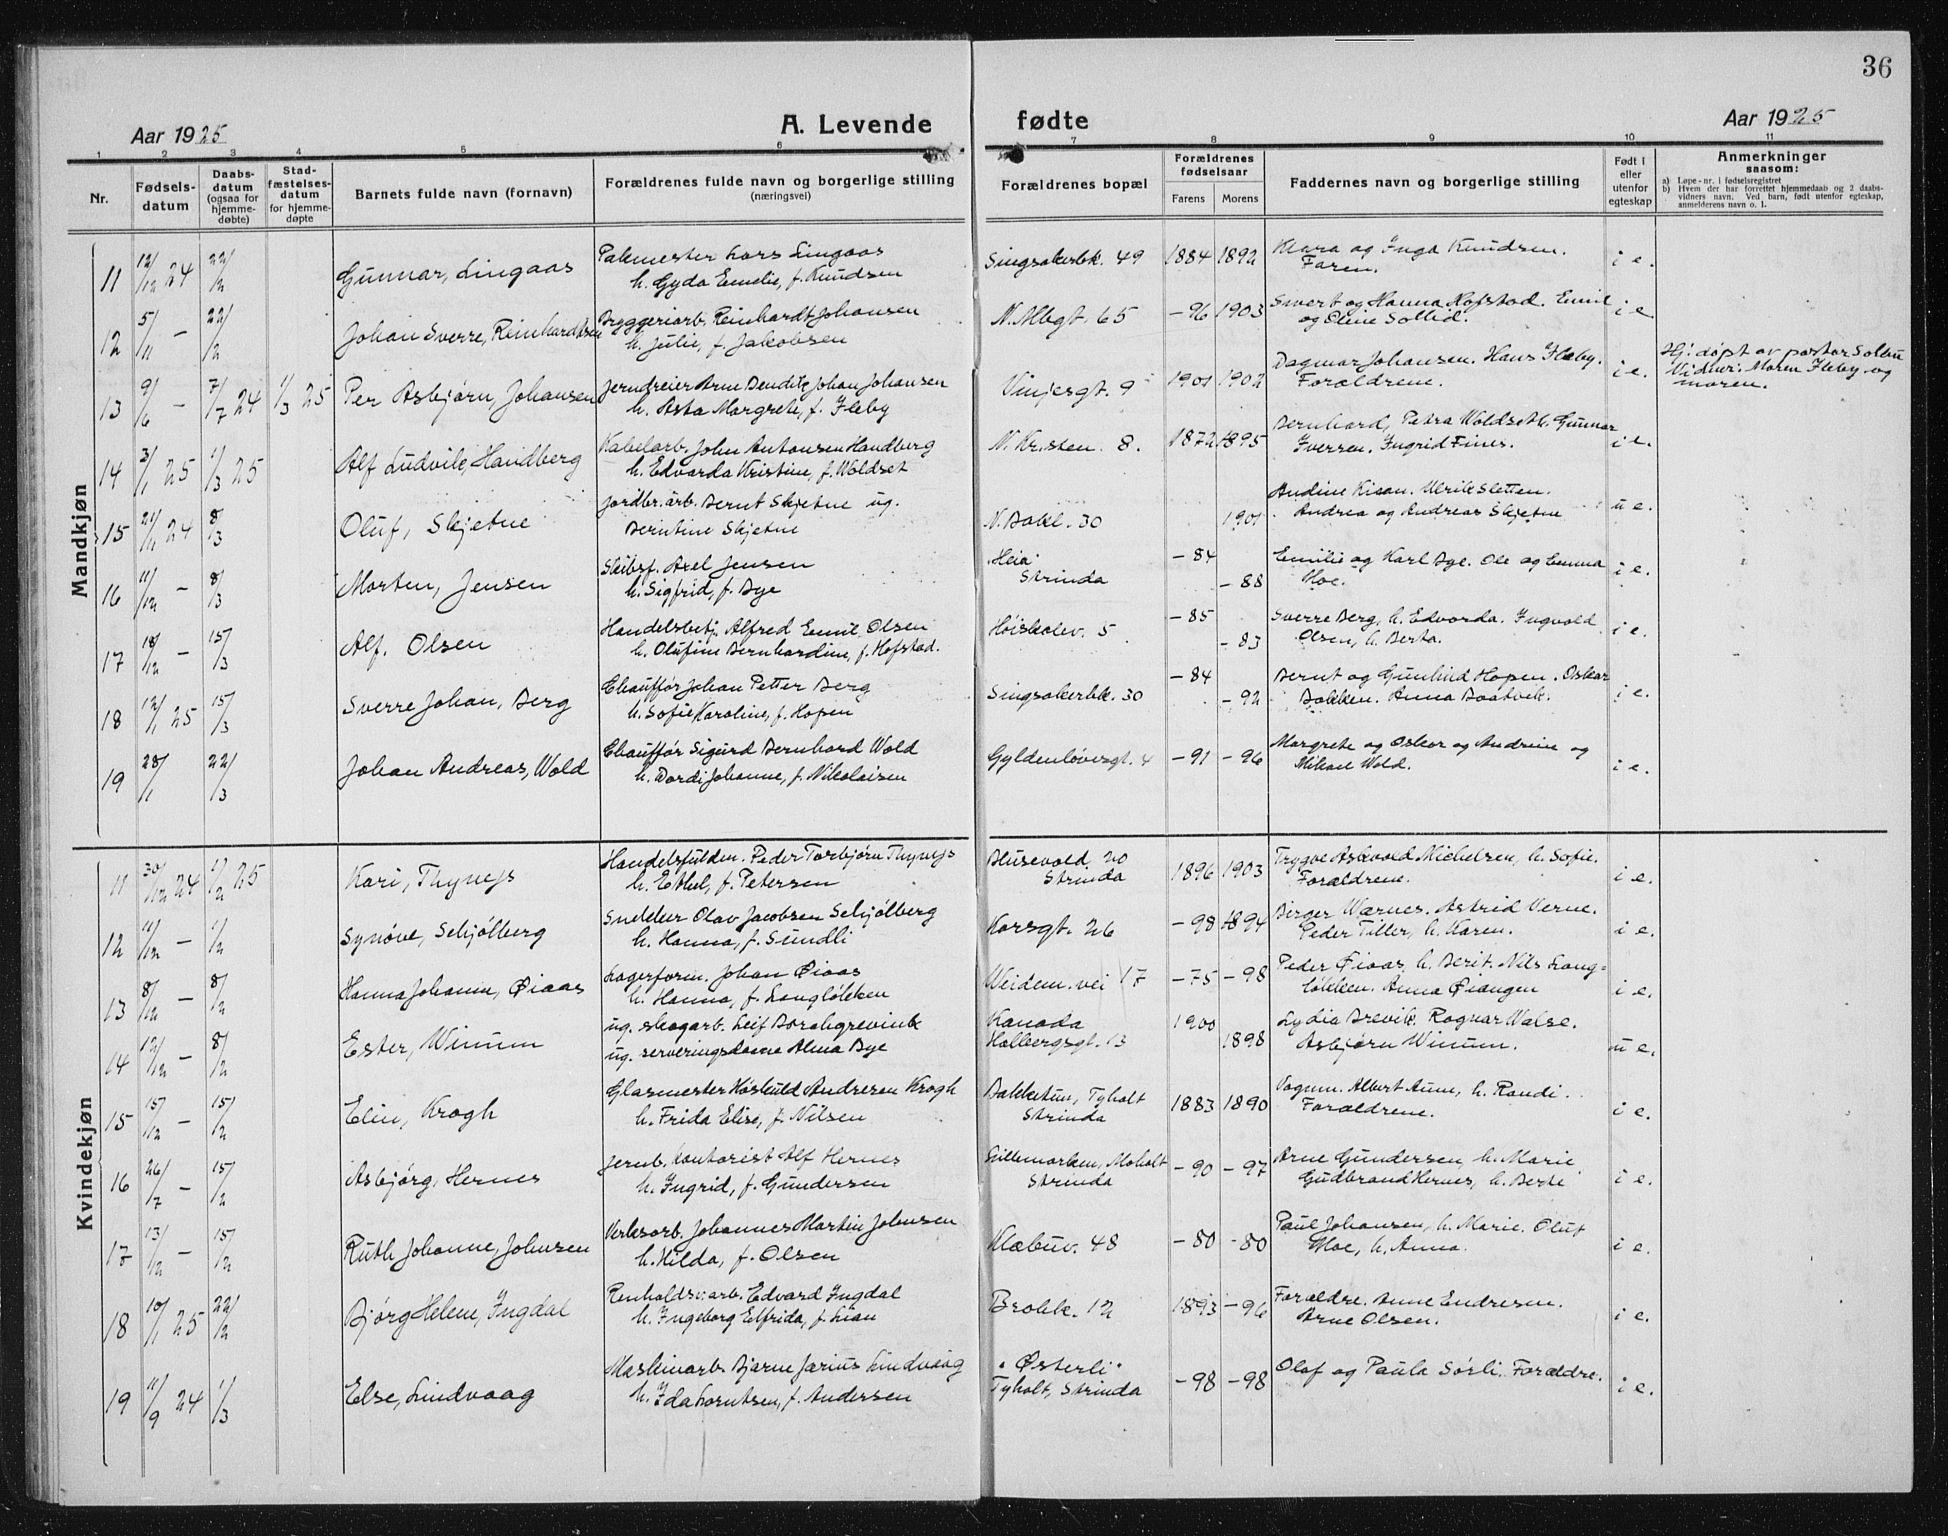 36
Aar 1925
A. Levende fødte
Aar 1925
1 2 3 4 5 6 7 8 9 10 11
Nr.
Fødsels-
datum
Daabs-
datum
(ogsaa for
hjemme-
døbte)
Stad-
fæstelses-
datum
for hjemme-
døpte
Barnets fulde navn (fornavn)
Forældrenes fulde navn og borgerlige stilling
(næringsvei)
Forældrenes bopæl
Forældrenes
fødselsaar
Farens Morens
Faddernes navn og borgerlige stilling
Født i
eller
utenfor
egteskap
Anmerkninger
saasom:
a) Løpe-nr. i fødselsregistret
b) Hvem der har forrettet hjemmedaab og 2 daabs-
vidners navn. Ved barn, født utenfor egteskap,
anmelderens navn o. l.
Mandkjøn
11 12/12 24 22/2 Gunnar, Lingaas
Lars Lingaas
h. Gyda Emelie, f. Knudsen
Singsakerbk. 49 1884 1892
Klara og Inga Knudsen.
Faren.
i e.
12 5/11 — 22/2 Johan Sverre, Reinhardtsen
Bryggeriarb. Reinhardt Johansen
h. Julie, f. Jakobsen
N. Albgt. 65 -96 1903
Sivert og Hanna Hofstad. Emil
og Oline Sollid.
i e.
13 9/6 — 7/7 24 1/3 25 Per Asbjørn, Johansen
Jerndreier Arne Benditz Johan Johansen
h. Asta Margrete, f. Fleby
Vinjesgt. 9 1901 1902
Dagmar Johansen. Hans Fleby.
Forældrene.
i e.
Hj. døpt av pastor Solem
Vidner: Maren Fleby og
moren.
14 3/1 25 1/3 25 Alf Ludvik, Handberg
Kabelarb. John Antonsen Handberg
h. Edvarda Kristine, f. Woldset
N. Kr.sten. 8. 1872 1895
Bernhard, Petra Woldseth. Gunnar
Iversen. Ingrid Fines.
i e.
15 21/11 24 8/3 Oluf, Skjetne
Jordbr. arb. Bernt Skjetne ug.
Berntine Skjetne
N. Bakl. 30 1901
Andine Kisan. Ulrik Sletten.
Andrea og Andreas Skjetne
u e.
16 11/12 — 8/3 Morten, Jensen
Skibsf. Axel Jensen
h. Sigfrid, f. Bye
Heia
Strinda
-84 -88
Emilie og Karl Bye. Ole og Emma
Hoe.
i e.
17 18/12 — 15/3 Alf. Olsen
Handelsbetj. Alfred Emil Olsen
h. Olufine Bernhardine, f. Hofstad.
Høiskolev. 5 -85 -83
Sverre Berg, h. Edvarda. Ingvald
Olsen, h. Berta.
i e.
18 12/1 25 15/3 Sverre Johan, Berg
Chauffør Johan Petter Berg
h. Sofie Karoline, f. Hopen
Singsakerbk. 30 -84 -92
Bernt og Gunhild Hopen. Oskar
Bakken. Anna Baatvik.
i e.
19 28/1 22/3 Johan Andreas, Wold
Chauffør Sigurd Bernhard Wold
h. Dordi Johanne, f. Nikolaisen
Gyldenløvesgt. 4 -91 -96
Margrete og Oskar og Andrine og
Mikael Wold.
i e.
Kvindekjøn
11 30/12 24 1/2 25 Kari, Thyness
Handelsfuldm. Peder Torbjørn Thyness
h. Ethel, f. Petersen
Blusevold 20
Strinda
1896 1903
Trygve Askvold Michelsen, h. Sofie.
Forældrene.
i e.
12 11/12 — 1/2 Synøve, Schjølberg
Snekker Olav Jacobsen Schjølberg
h. Hanna, f. Sundli
Korsgt. 26 -98 1894
Birger Wærnes. Astrid Verne.
Peder Tiller, h. Karen.
i e.
13 8/12 — 8/2 Hanna Johanne, Øiaas
Lagerform. Johan Øiaas
h. Hanna, f. Langløkken
Weidem. vei 17 -75 -98
Peder Øiaas, h. Berit. Nils Lang=
løkken. Anna Øiangen
i e.
14 12/12 — 8/2 Ester, Winum
ug. skogarb. Leif Borchgrevink
ug. serveringsdame Alma Bye
Kanada
Holbergsgt. 13
1900 1898
Lydia Brevik. Ragnar Walse.
Asbjørn Winum.
u e.
15 15/12 — 15/2 Elin, Krogh
Glasmester Høskuld Andresen Krogh
h. Frida Elise, f. Nilsen
Bakketun, Tyholt
Strinda
1883 1890
Vognm. Albert Aune, h. Randi.
Forældrene.
i e.
16 26/7 — 15/2 Asbjørg, Hernes
Jernb. kontorist Alf Hernes
h. Ingrid, f. Gundersen
Lillemarken, Moholt
Strinda
-90 -97
Arne Gundersen, h. Marie
Gudbrand Hernes, h. Berte
i e.
17 13/12 — 15/2 Ruth Johanne, Johnsen
Verksarb. Johannes Martin Johnsen
h. Hilda, f. Olsen
Klæbuv. 48 -80 -80
Paul Johansen, h. Marie. Oluf
Moe, h. Anna.
i e.
18 10/1 25 22/2 Bjørg Helene, Ingdal
Renholdsv. arb. Edvard Ingdal
h. Ingeborg Elfrida, f. Lian
Brobk. 12 1893 -96
Forældre. Anne Endresen.
Arne Olsen.
i e.
19 11/9 24 1/3 Else, Lindvaag
Maskinarb. Bjarne Jarius Lindvaag
h. Ida Lorntsen, f. Andersen
"Østerli"
Tyholt, Strinda
-98 -98
Olaf og Paula Sørli. Forældre.
i e.